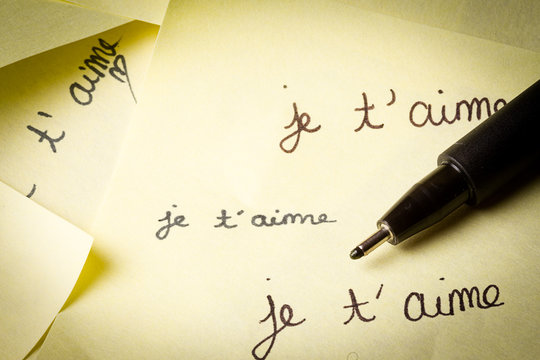 t' aime
je t'aime
je t'aime
je t'aime